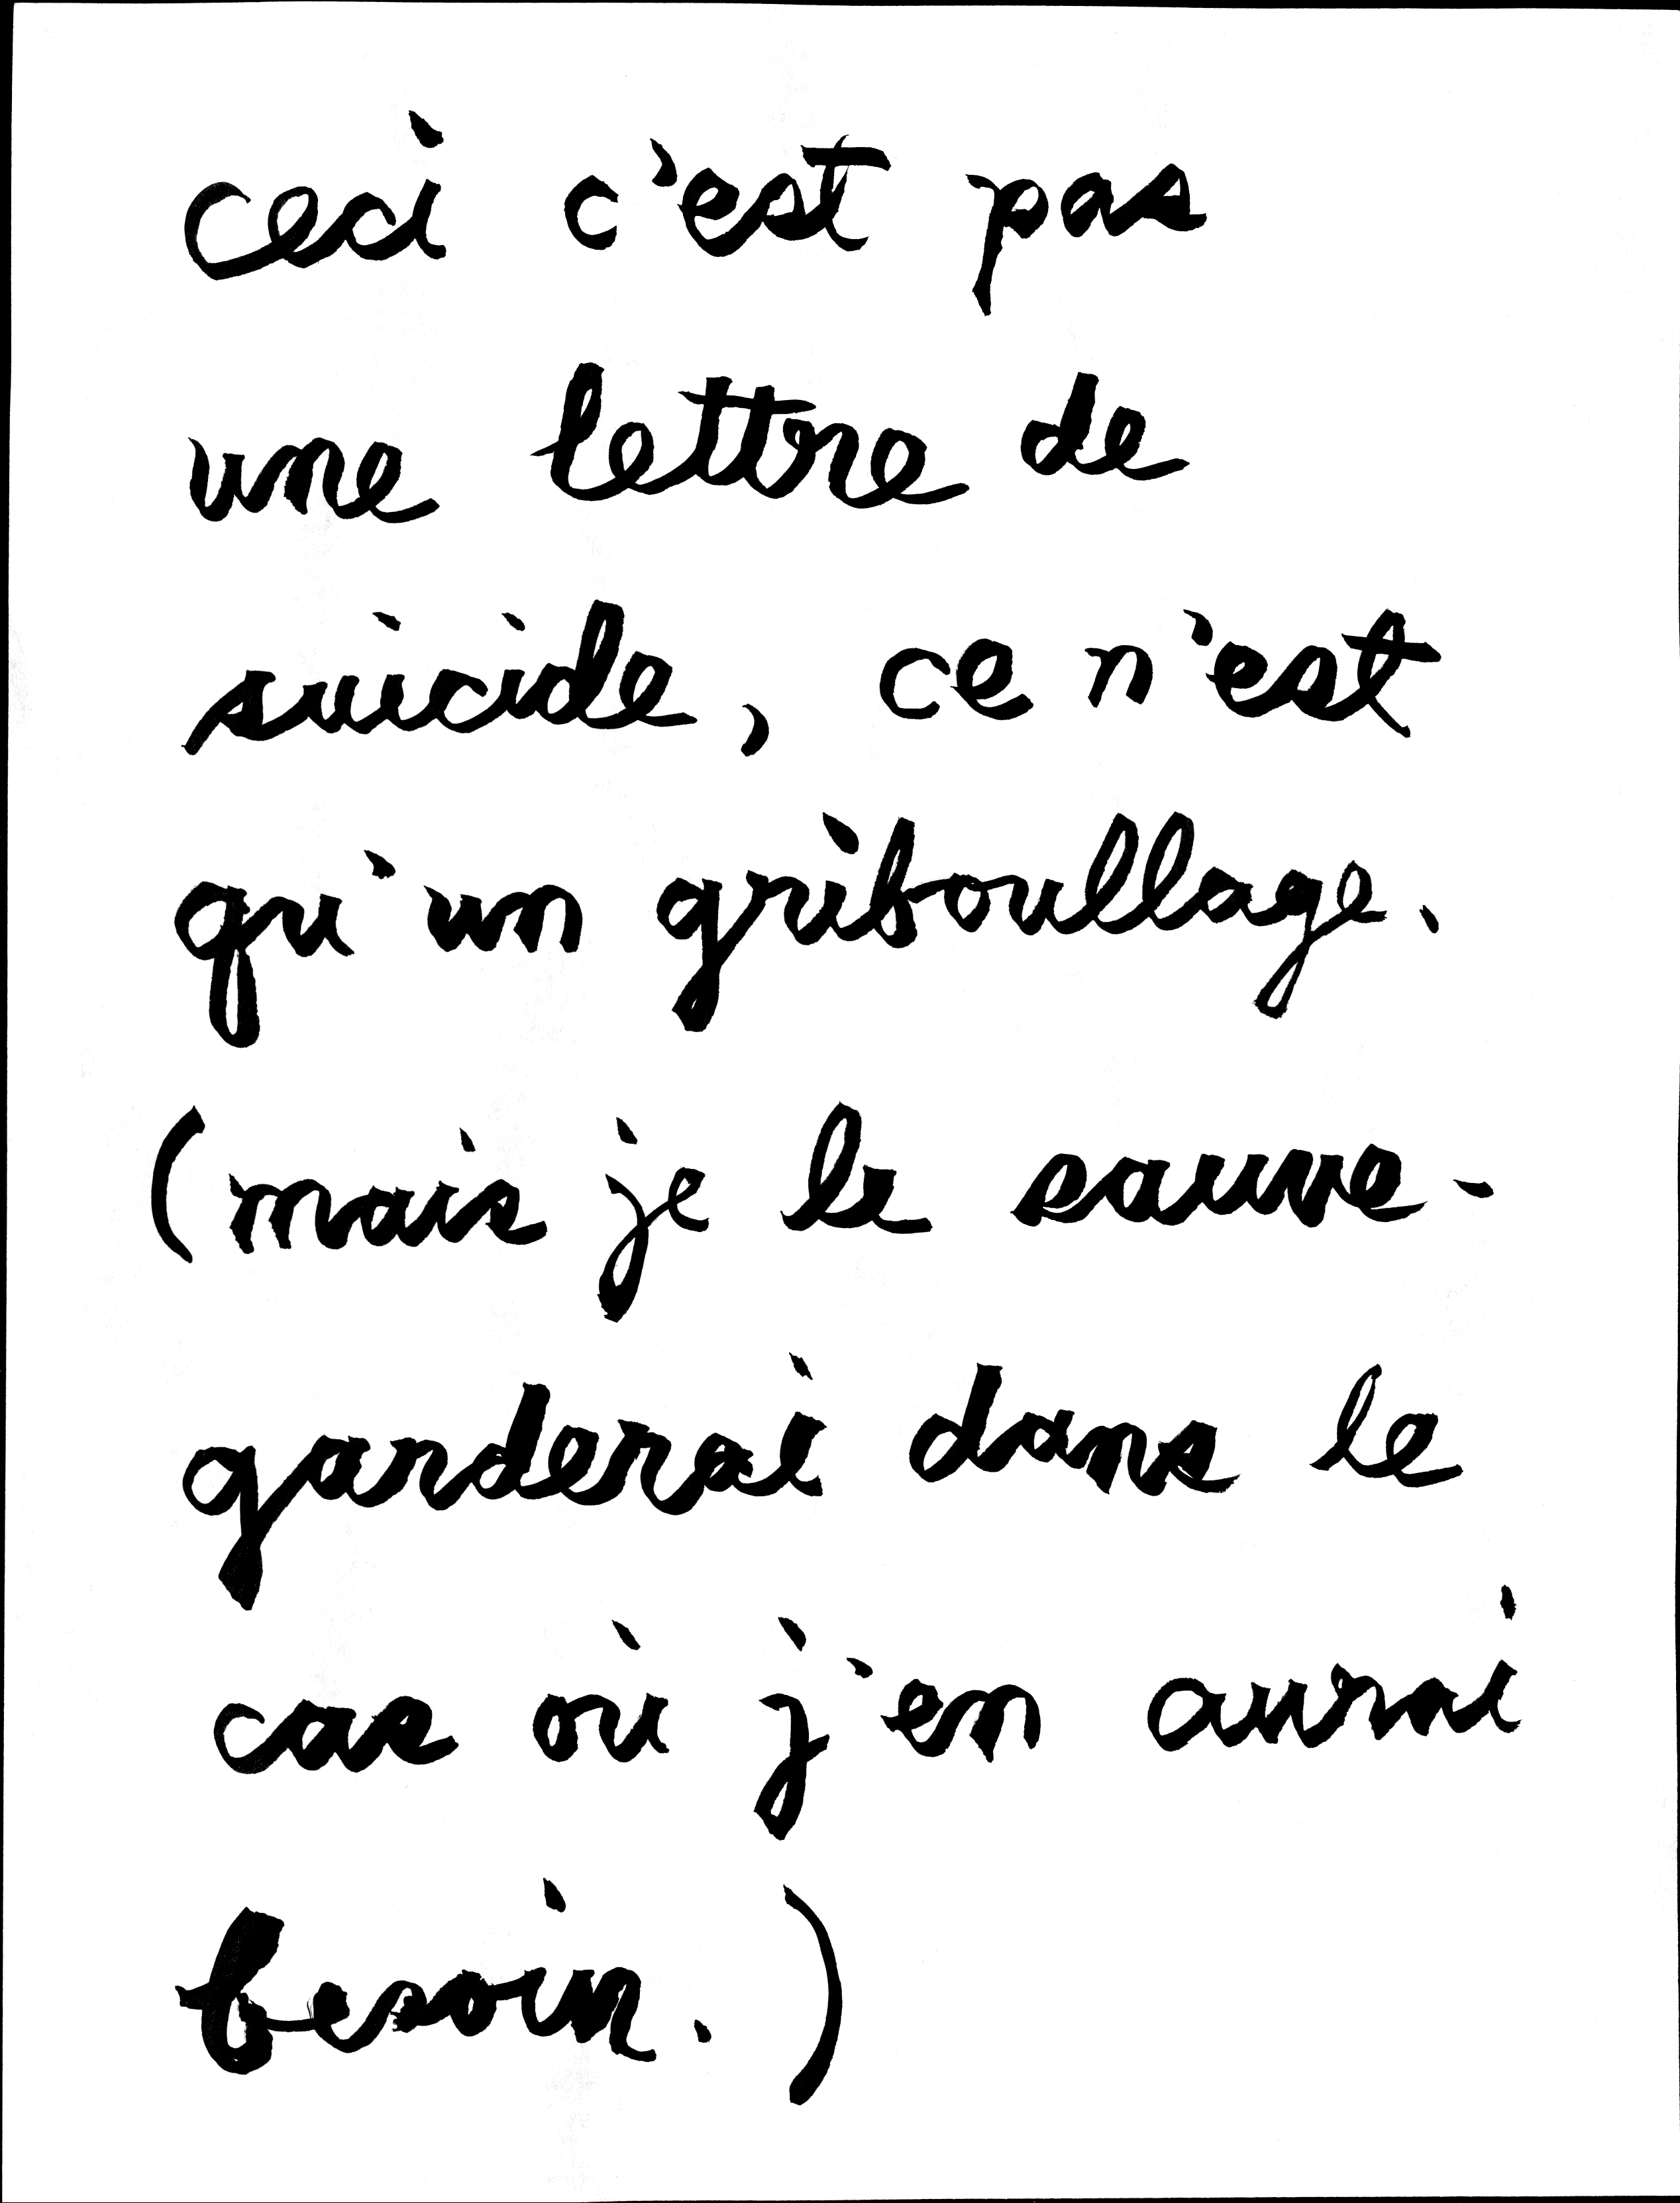 ceci c'est pas
une lettre de
suicide, ce n'est
qu'un griboullage.
(mais je le sauve-
garderai dans le
cas où j'en aurai
besoin.)